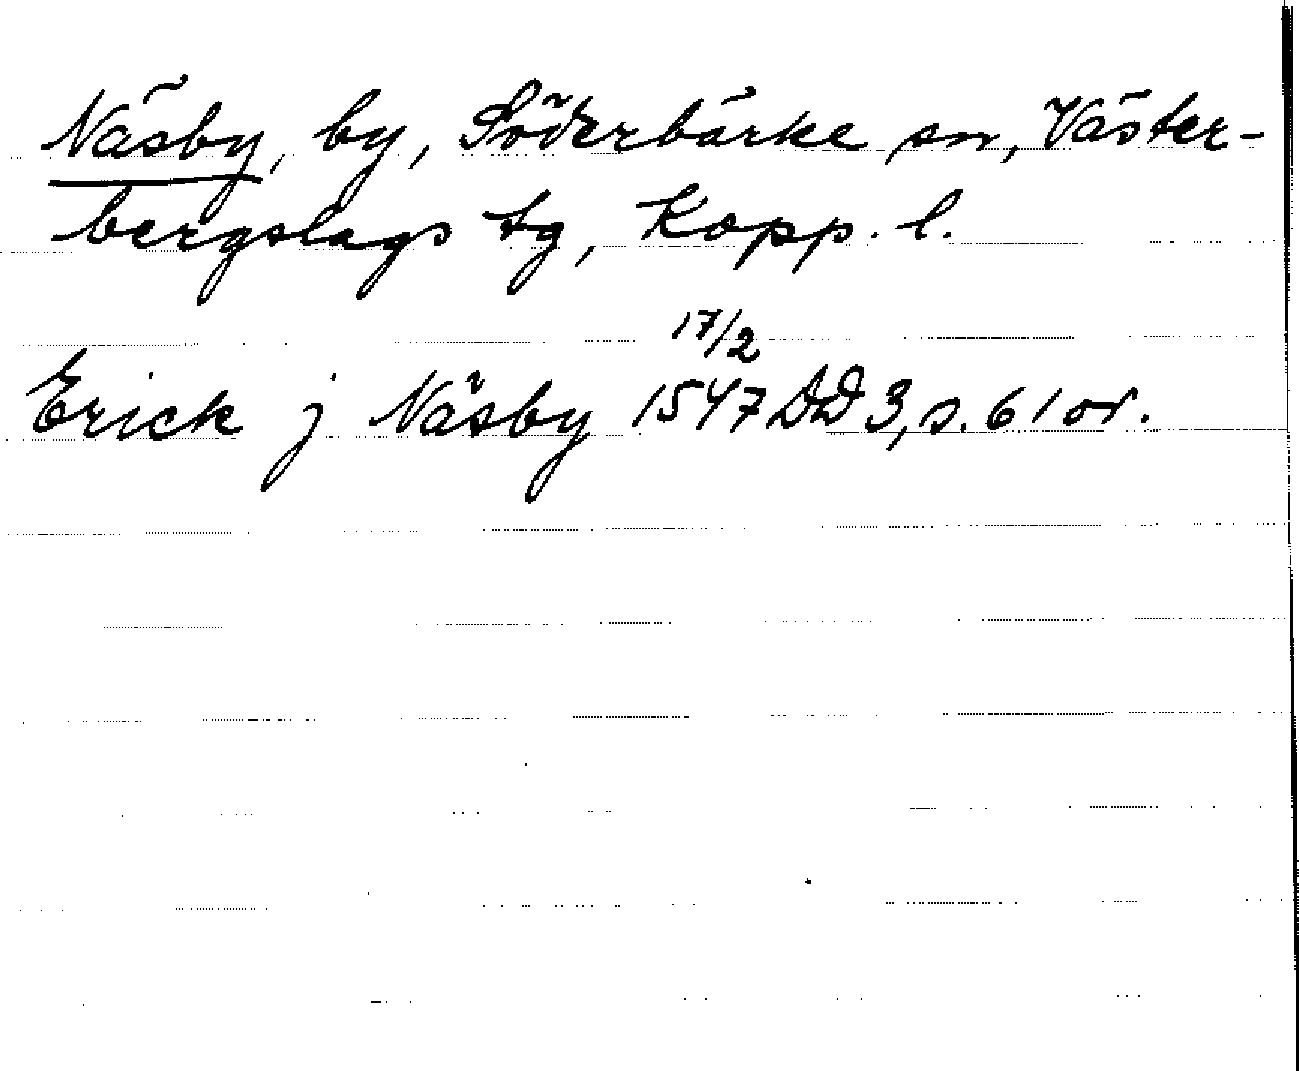 Näsby, by, Söderbärke sn, Väster-
bergslags tg, Kopp. l.
17/2
Erick j Näsby 1547 DD 3, s. 61 or.